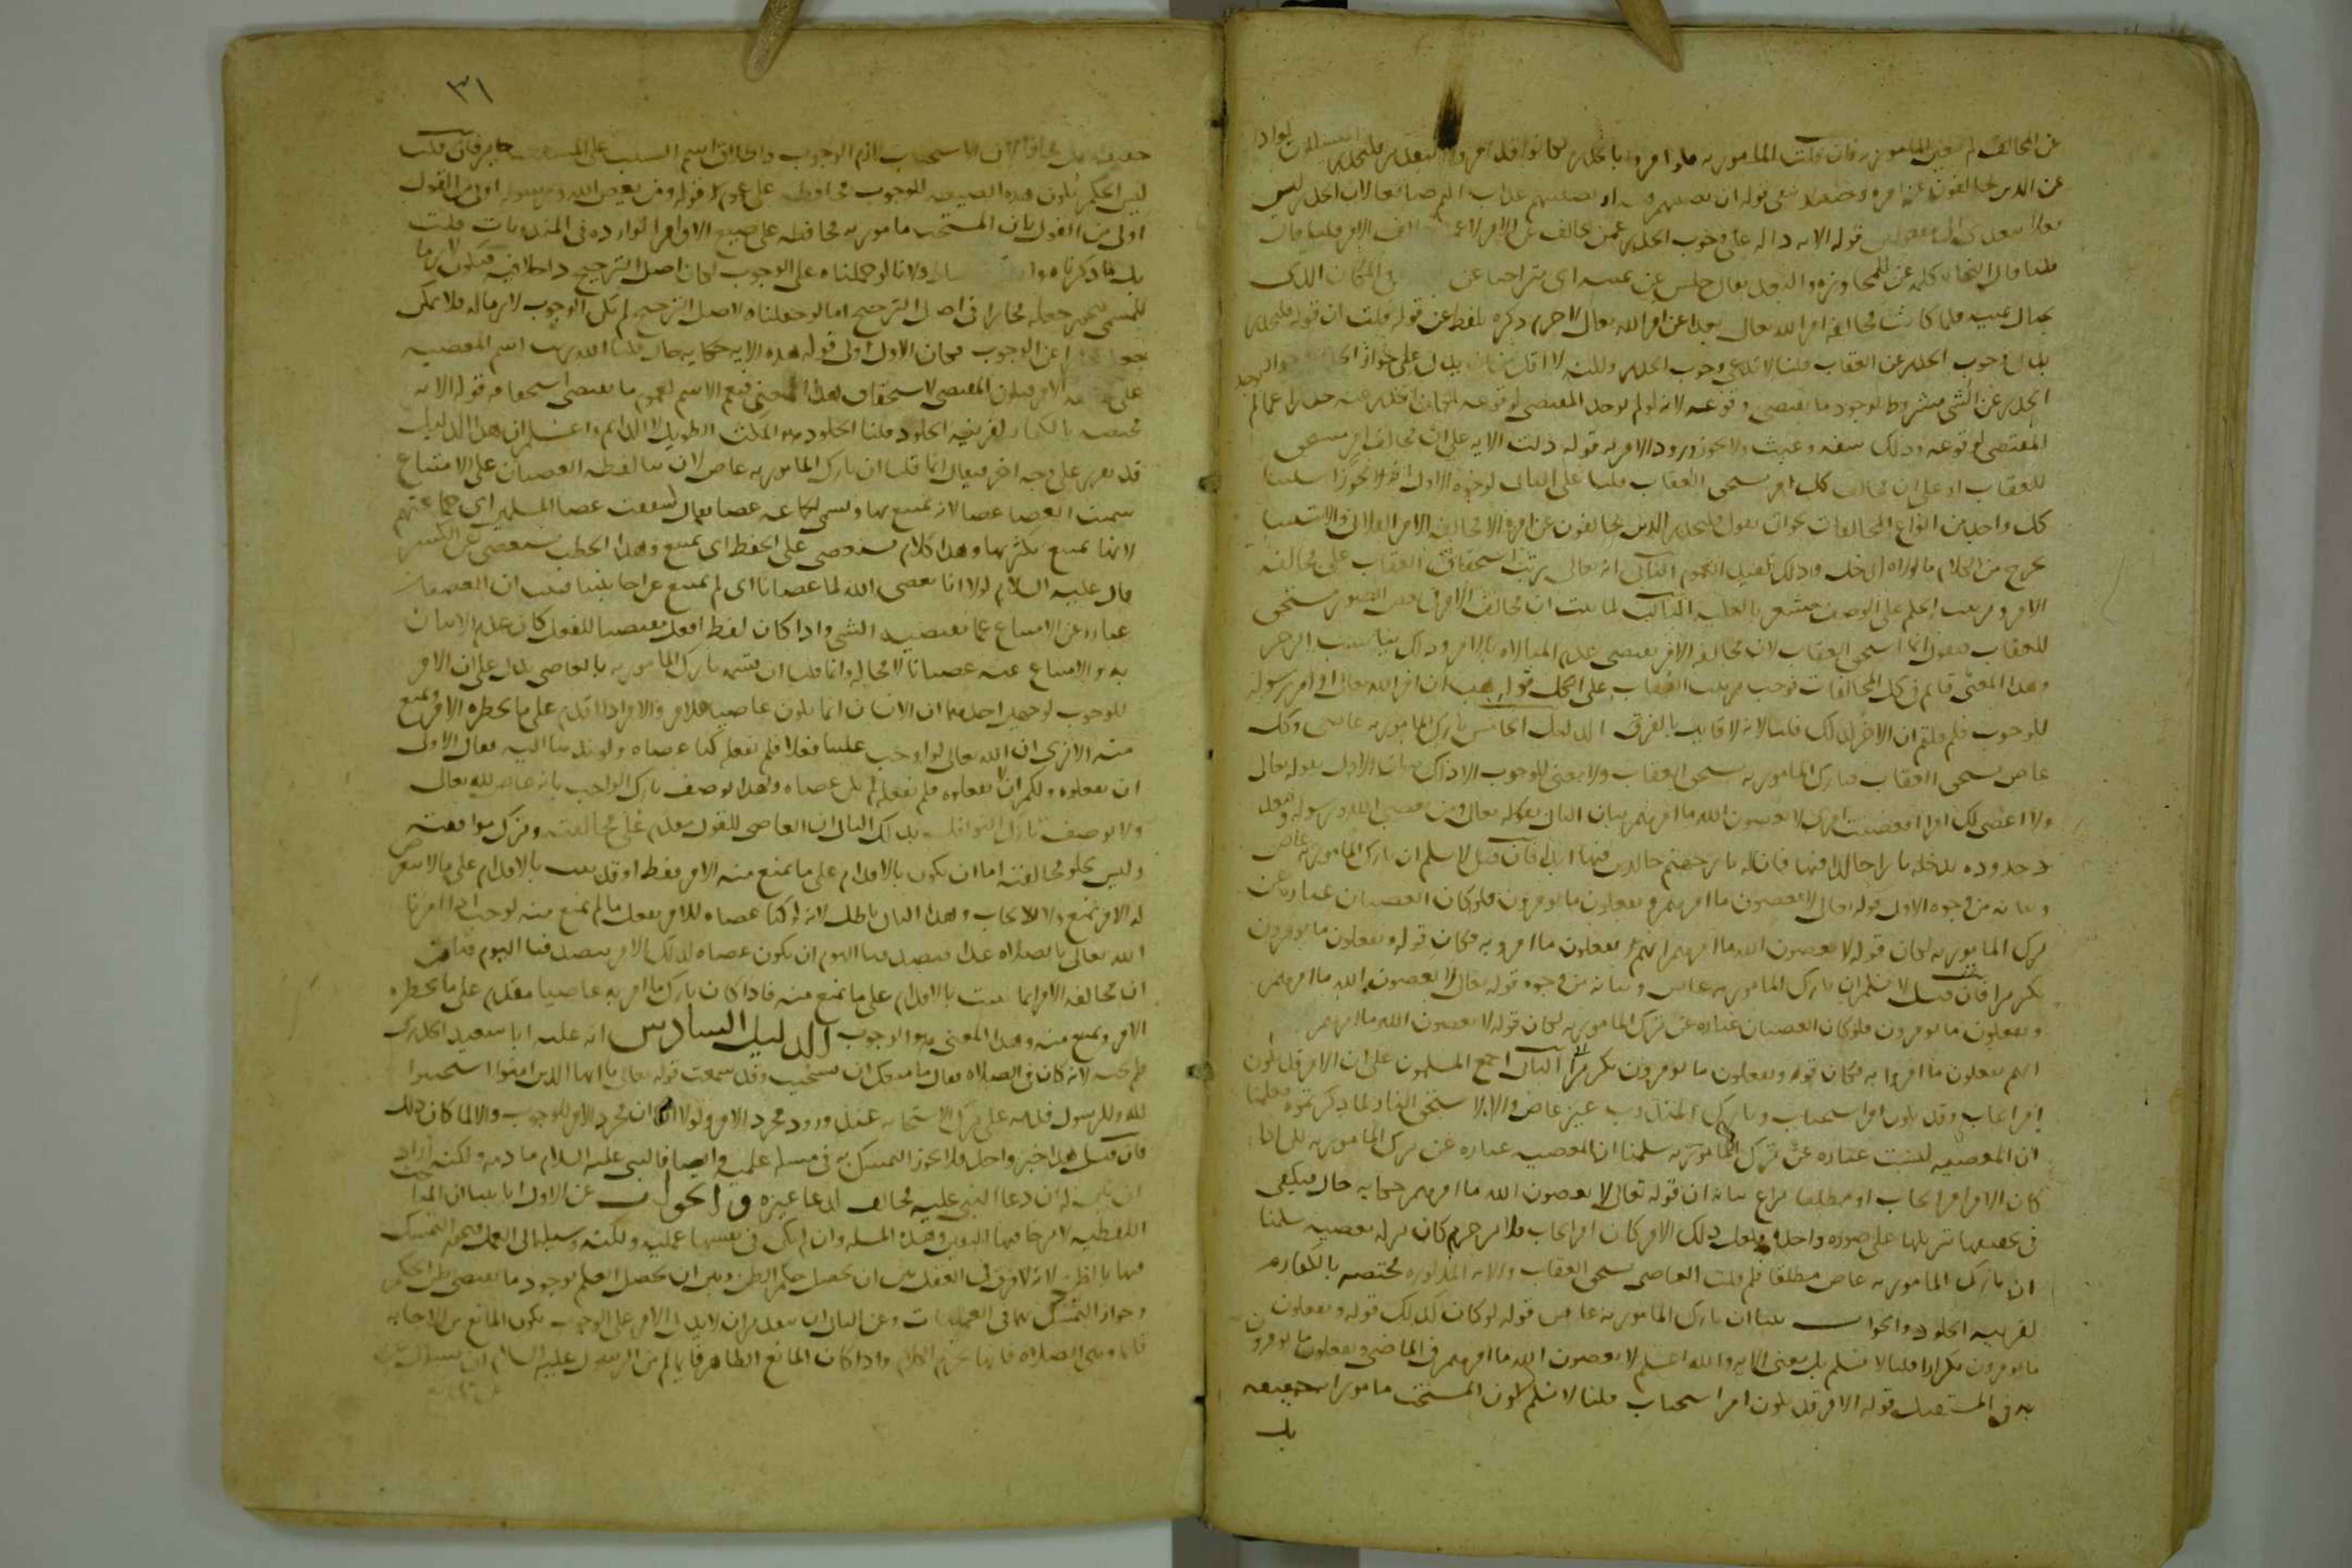 عن المخالف لم يتعين المأمور به فان قلت المأمور به
عن الذين يخالفون عن امره وحينئذ يبقى قوله ان تصيبهم فتنة او يصيبهم عذاب اليم ضائعا لان الحذر ليس
قوله الاية دالة على وجوب الحذر عمن يخالف عن الامر لا
قلنا قال النحاة كلمة عن للمجاوزة والبعد يقال جلس عن يمينه اى متراخيا عن في المكان الذي
بحيال يمينه فلما كانت مخالفة امر الله تعالى بعدا عن امر الله تعالى لا جرم ذكره بلفظ عن قوله قلت ان قوله فليحذر
يدل على وجوب الحذر عن العقاب قلنا لا ندعي وجوب الحذر ولكنه لا اقل من ان يدل على جواز الحذر
الحذر عن الشى مشروط بوجود ما يقتضى وقوعه لانه لو لم يوجد المقتضى لوقوعه لكان الحذر عنه حذرا عما لم
المقتضى لوقوعه وذلك سفه وعبث ولا يجوز ورود الامر به قوله دلت الاية على ان مخالف امر يستحق
العقاب او على ان مخالف كل امر يستحق العقاب قلنا على الثانى لوجوه الاول انه لا يجوز استثنا
كل واحد من انواع المخالفات نحو ان يقول فليحذر الذين يخالفون عن امره الا مخالفة الامر الفلاني والاستثنا
يخرج من الكلام ما لولاه لدخل وذلك يفيد العموم الثانى انه تعالى رتب استحقاق العقاب على مخالفة
الامر وترتيب الحكم على الوصف مشعر بالعلية الثالث لما ثبت ان مخالف الامر في بعض الصور مستحق
للعقاب فنقول انما استحق العقاب لان مخالفة الامر يقتضى عدم المبالاة بالامر وذلك يناسب الزجر
وهذا المعنى قائم في كل المخالفات فوجب ترتيب العقاب على الكل قوله هب ان امر الله تعالى او امر رسوله
للوجوب فلم قلتم ان الامر كذلك قلنا لانه لا قايل بالفرق الدليل الخامس تارك المأمور به عاصى وكل
عاص يستحق العقاب فتارك المأمور به يستحق العقاب ولا معنى للوجوب الا ذاك بيان الاول بقوله تعالى
ولا اعصى لك امرا افعصيت امرى لا يعصون الله ما امرهم بيان الثانى بقوله تعالى ومن يعص الله ورسوله ويتعد
حدوده يدخله نارا خالدا فيها فان له نار جهنم خالدين فيها ابدا فان قيل لا نسلم ان تارك المأمور به عاص
وبيانه من وجوه الاول قوله تعالى لا يعصون ما امرهم ويفعلون ما يؤمرون فلو كان العصيان عبارة عن
ترك المأمور به لكان قوله لا يعصون الله ما امرهم انهم يفعلون ما امروا به فكان قوله ويفعلون ما يؤمرون
تكريرا فان قيل لا نسلم ان تارك المأمور به عاص وبيانه من وجوه قوله تعالى لا يعصون الله ما امرهم
ويفعلون ما يؤمرون فلو كان العصيان عبارة عن ترك المأمور به لكان قوله لا يعصون الله ما امرهم
انهم يفعلون ما امروا به فكان قوله ويفعلون ما يؤمرون تكريرا الثانى اجمع المسلمون على ان الامر قد يكون
امر ايجاب وقد يكون امر استحباب وتارك المندوب غير عاص والا لا ستحق النار لما ذكرتموه فعلمنا
ان المعصية ليست عبارة عن ترك المأمور به سلمنا ان المعصية عبارة عن ترك المأمور به لكن اذا
كان الامر امر ايجاب او مطلقا بيانه ان قوله تعالى لا يعصون الله ما امرهم حكاية حال فيكفى
في تحقيقها تنزيلها على صورة واحدة فلعل ذلك الامر كان امر ايجاب فلا جرم كان تركه معصية سلمنا
ان تارك المأمور به عاص مطلقا فلم قلت العاصى يستحق العقاب والاية المذكورة مختصة بالكفار
لقرينة الخلود والجواب بينا ان تارك المأمور به عاص قوله لو كان كذلك لكان قوله ويفعلون
ما يؤمرون تكرارا قلنا لا نسلم بل معنى الاية والله اعلم لا يعصون الله ما امرهم في الماضى ويفعلون ما يؤمرون
به في المستقبل قوله الامر قد يكون امر استحباب قلنا لا نسلم كون المستحب مامورا به حقيقة
بل
٣١
لازم الوجوب واطلاق اسم السبب على المسبب جايز فان قلت
ليس الحكم بكون هذه الصيغة للوجوب محافظة على عموم قوله ومن يعص الله ورسوله اولى من القول
اولى من القول بان المستحب مامور به محافظة على صيغ الاوامر الواردة في المندوبات قلت
بل ما ذكرناه ولانا لو حملناه على الوجوب لكان اصل الترجيح داخلا فيه فيكون لازما
للمسمى فيجوز جعله مجازا في اصل الترجيح اما لو جعلناه لاصل الترجيح لم يكن الوجوب لازما له فلا يمكن
عن الوجوب فكان الاول اولى قوله هذه الاية حكاية حال قلنا الله رتب اسم المعصية
على الامر فيكون المقتضى لاستحقاق هذا المعنى فيعم الاسم لعموم ما يقتضى استحقاقه قوله الاية
مختصة بالكفار لقرينة الخلود قلنا الخلود هو المكث الطويل لا الدائم واعلم ان هذا الدليل
قد يقرر على وجه اخر فيقال انما قلنا ان تارك المأمور به عاص لان بنا لفظة العصيان على الامتناع
سميت العصا عصا لانه يمتنع بها وتسمى الجماعة عصا يقال شققت عصا المسلمين اى جماعتهم
لانها يمتنع بكثرتها وهذا كلام مستعصى على الحفظ اى يمتنع وهذا الحطب يستعصى عن الكسر
قال عليه السلام لولا انا نعصى الله لما عصانا اى لم يمتنع عن اجابتنا فثبت ان العصيان
عبارة عن الامتناع عما يقتضيه الشى واذا كان لفظ افعل مقتضيا للفعل كان عدم الاتيان
به والامتناع عنه عصيانا لا محالة وانما قلنا ان تسمية تارك المأمور به بالعاصى يدل على ان الامر
للوجوب لوجهين احدهما ان الانسان انما يكون عاصيا للامر والامر اذا اقدم على ما يحظره الامر ويمنع
منه الا ترى ان الله تعالى لو اوجب علينا فعلا فلم نفعله كنا عصاه ولو ندبنا اليه فقال الاولى
ان تفعلوه ولكم ان لا تفعلوه فلم نفعله لم نكن عصاه ولهذا يوصف تارك الواجب بانه عاص لله تعالى
ولا يوصف تارك النوافل بذلك الثانى ان العاصى للقول مقدم على مخالفته وترك موافقته
وليس يخلو مخالفته اما ان يكون بالاقدام على ما يمنع منه الامر فقط او قد يثبت بالاقدام على ما لا يتعرض
له الامر بمنع ولا ايجاب وهذا الثانى باطل لانه لو كنا عصاه للامر بفعل ما لم يمنع منه لوجب اذا امرنا
الله تعالى بالصلاة غدا فتصدقنا اليوم ان نكون عصاه لذلك الامر بتصدقنا اليوم فبان
ان مخالفة الامر انما يثبت بالاقدام على ما يمنع منه فاذا كان تارك ما امر به عاصيا مقدم على ما يحظره
الامر ويمنع منه وهذا المعنى هو الوجوب الدليل السادس انه عليه ابا سعيد الخدرى
فلم يجبه لانه كان في الصلاة فقال ما منعك ان تستجيب وقد سمعت قوله تعالى يا ايها الذين امنوا استجيبوا
لله وللرسول فذمه على ترك الاستجابة عند ورود مجرد الامر ولولا ان مجرد الامر للوجوب والا لما كان ذلك
فان قيل هذا خبر واحد فلا يجوز التمسك به في مسئلة علمية وايضا فالنبى عليه السلام ما ذمه ولكنه اراد
ان يبين له ان دعا النبي عليه مخالف لدعا غيره والجواب عن الاول انا بينا ان المباحث
اللفظية لا يرجا فيها اليقين وهذه المسئلة وان لم يكن في نفسها عملية ولكنها وسيلة الى العمل فيجوز التمسك
فيها بالظن لانه لا فرق في العقل بين ان يحصل حكم الظن وبين ان يحصل العلم بوجود ما يقتضى ظن الحكم
وجواز التمسك بهما في العمليات وعن الثانى ان بتقدير ان لا يدل الامر على الوجوب يكون المانع من الاجابة
قايما وهى الصلاة فانها تحرم الكلام واذا كان المانع الظاهر قايما لم من الرسول عليه السلام ان يسأل عن